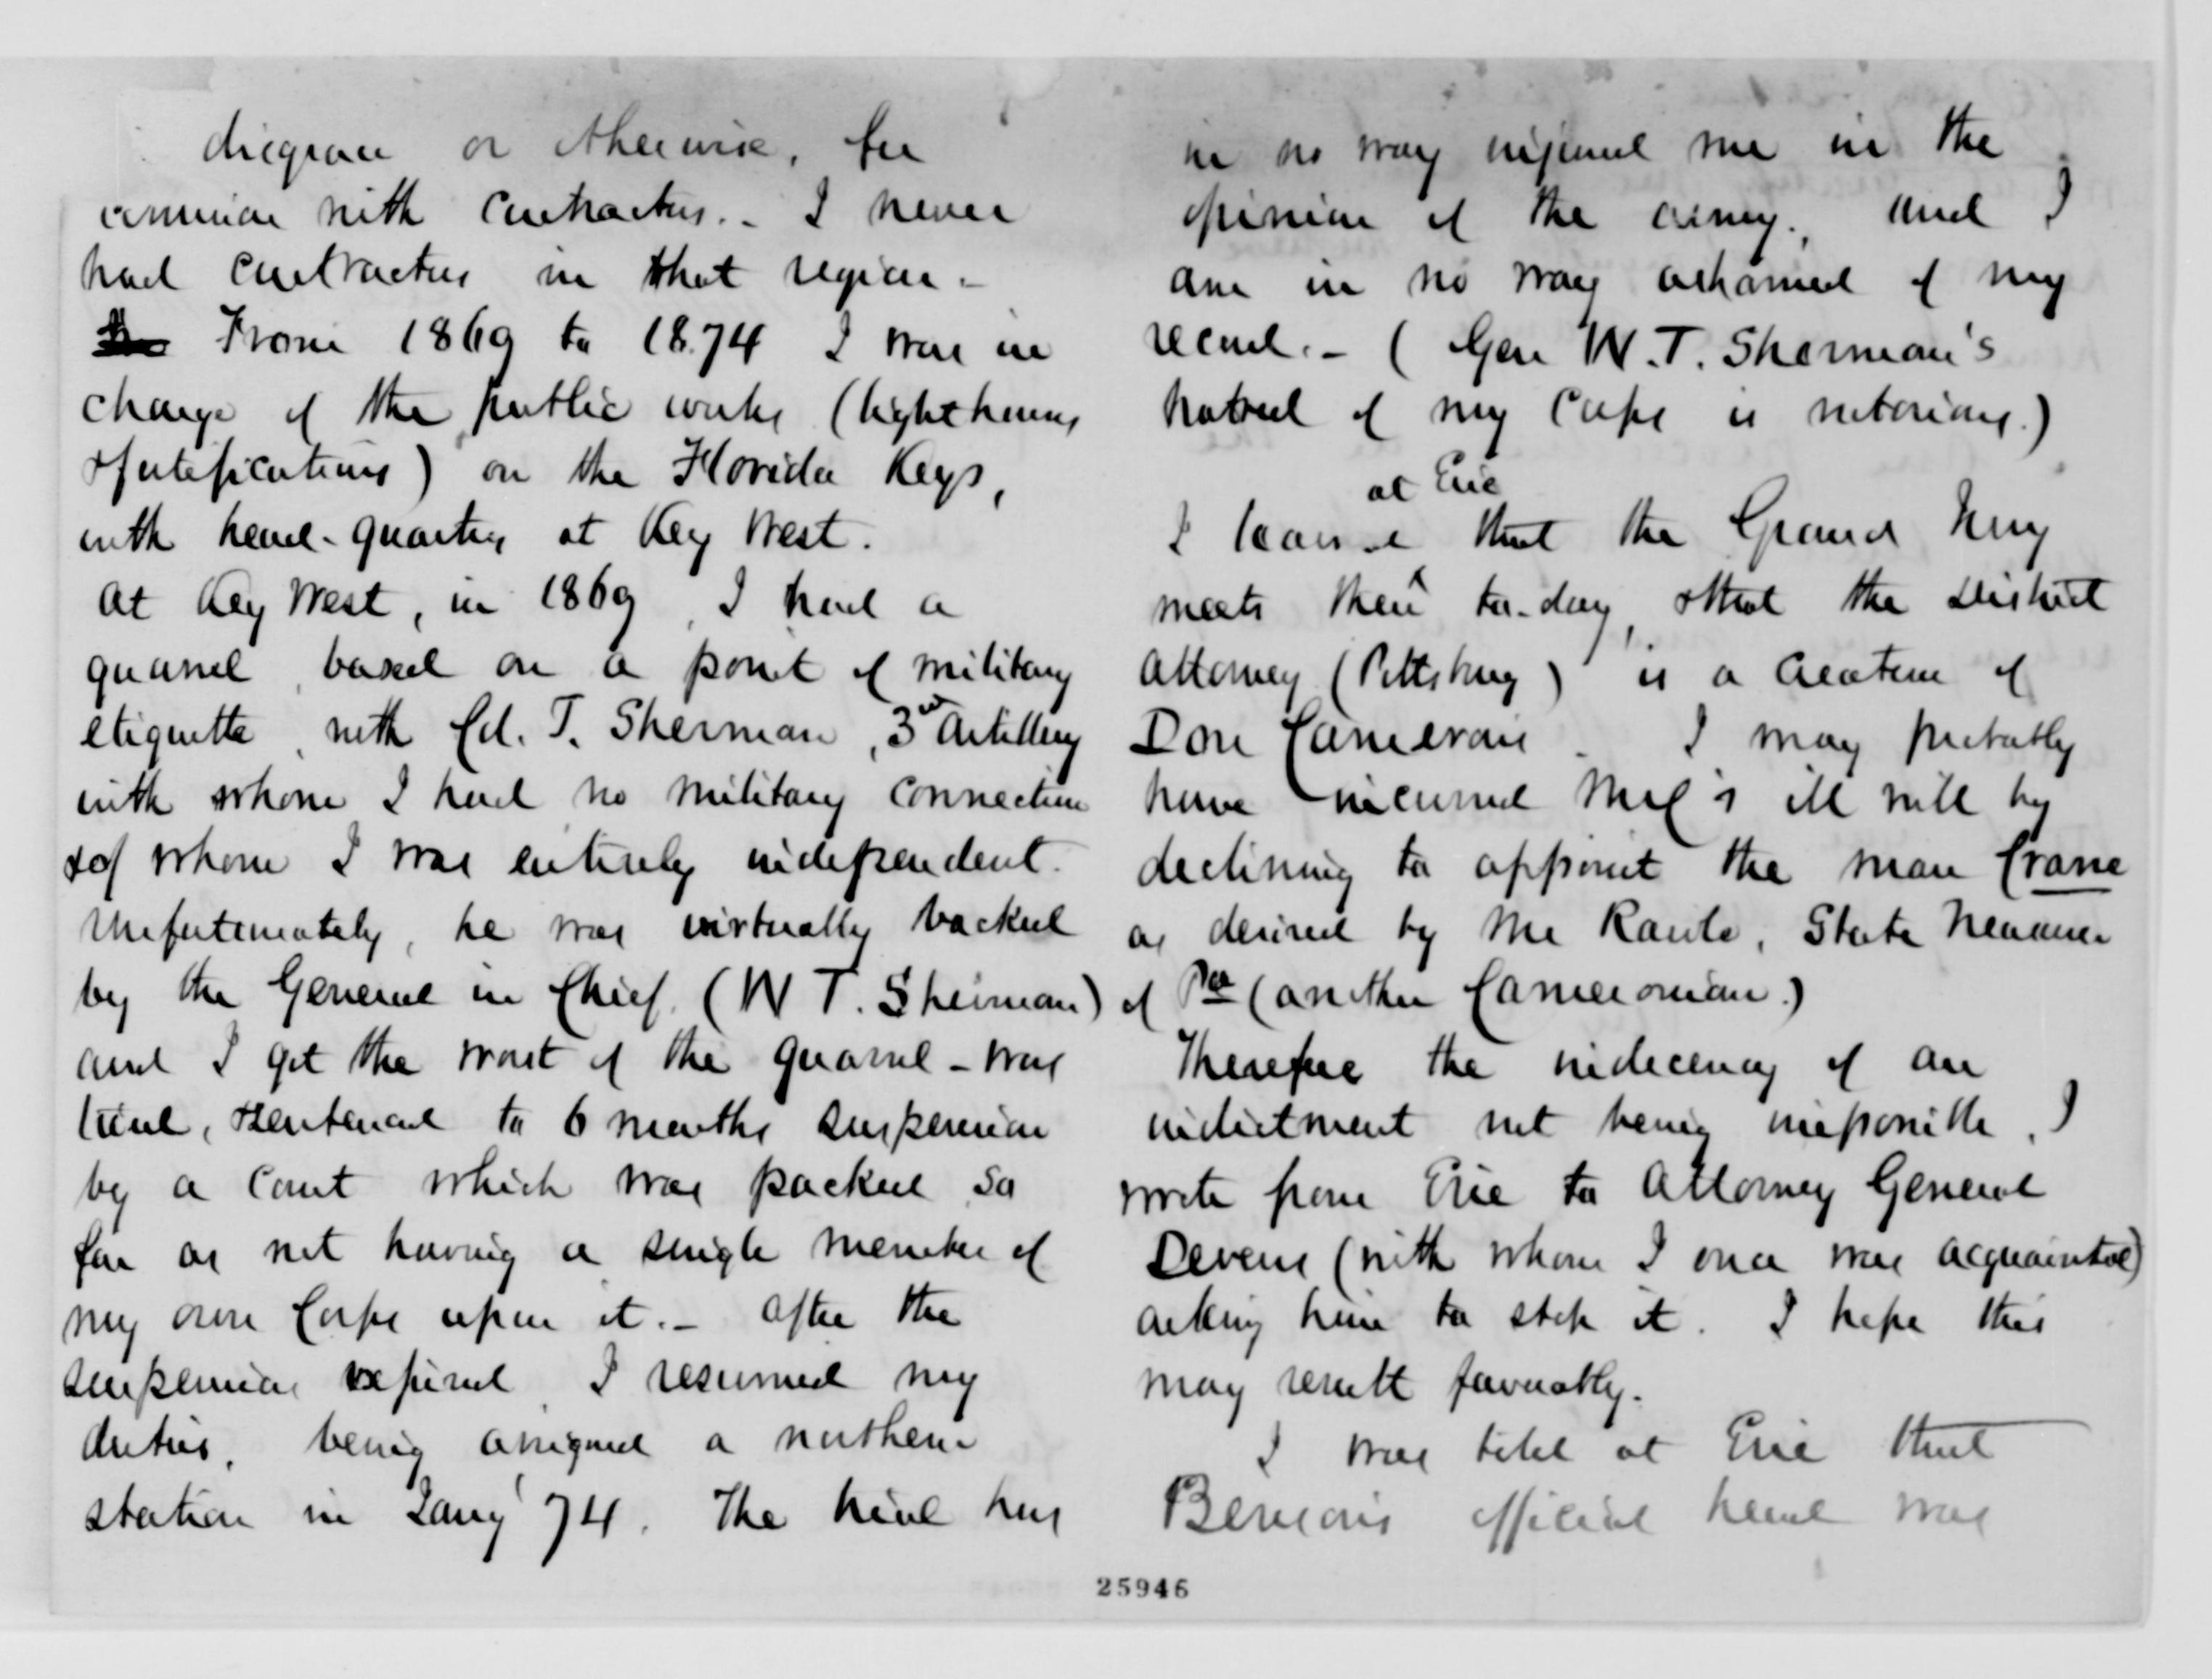 disgrace or otherwise, for
commision with contractors. - I never
had contractors in that region. -
From 1869 to 1874 I was in
charge of the public works (lighthouses
& fortifications) on the Florida Keys,
with head-quarters at Key West.
At Key West, in 1869, I had a
quarrel, based on a point of military
etiquette, with Col. T. Sherman, 3rd Artillery
with whom I had no military connection
& of whom I was entirely independent.
Unfortunately, he was virtually backed
by the General in Chief. (W T. Sherman)
and I got the worst of the quarrel - was
tried, & sentenced to 6 months suspension
by a court which was packed so
far as not having a single member of
my own Corps upon it. - After the
suspension expired I resumed my
duties, being assigned a northern
station in Jany '74. The trial has
in no way injured me in the
opinion of the army, and I
am in no way ashamed of my
record. - (Gen W. T. Sherman's
hatred of my Corps is notorious.)
at Erie
I learned that the Grand Jury
meets there to-day, & that the District
Attorney (Pittsburg) is a creature of
Don Cameron. I may probably
have incurred 's ill will by
declining to appoint the man Crane
as desired by Mr Rawle, State Treasurer
of Pa (another Cameronian.)
Therefore the indecency of an
indictment not being impossible, I
wrote from Erie to Attorney General
Devens (with whom I once was acquainted)
asking him to stop it. I hope this
may result favorably.
I was told at Erie that
Benson's official head was
25946